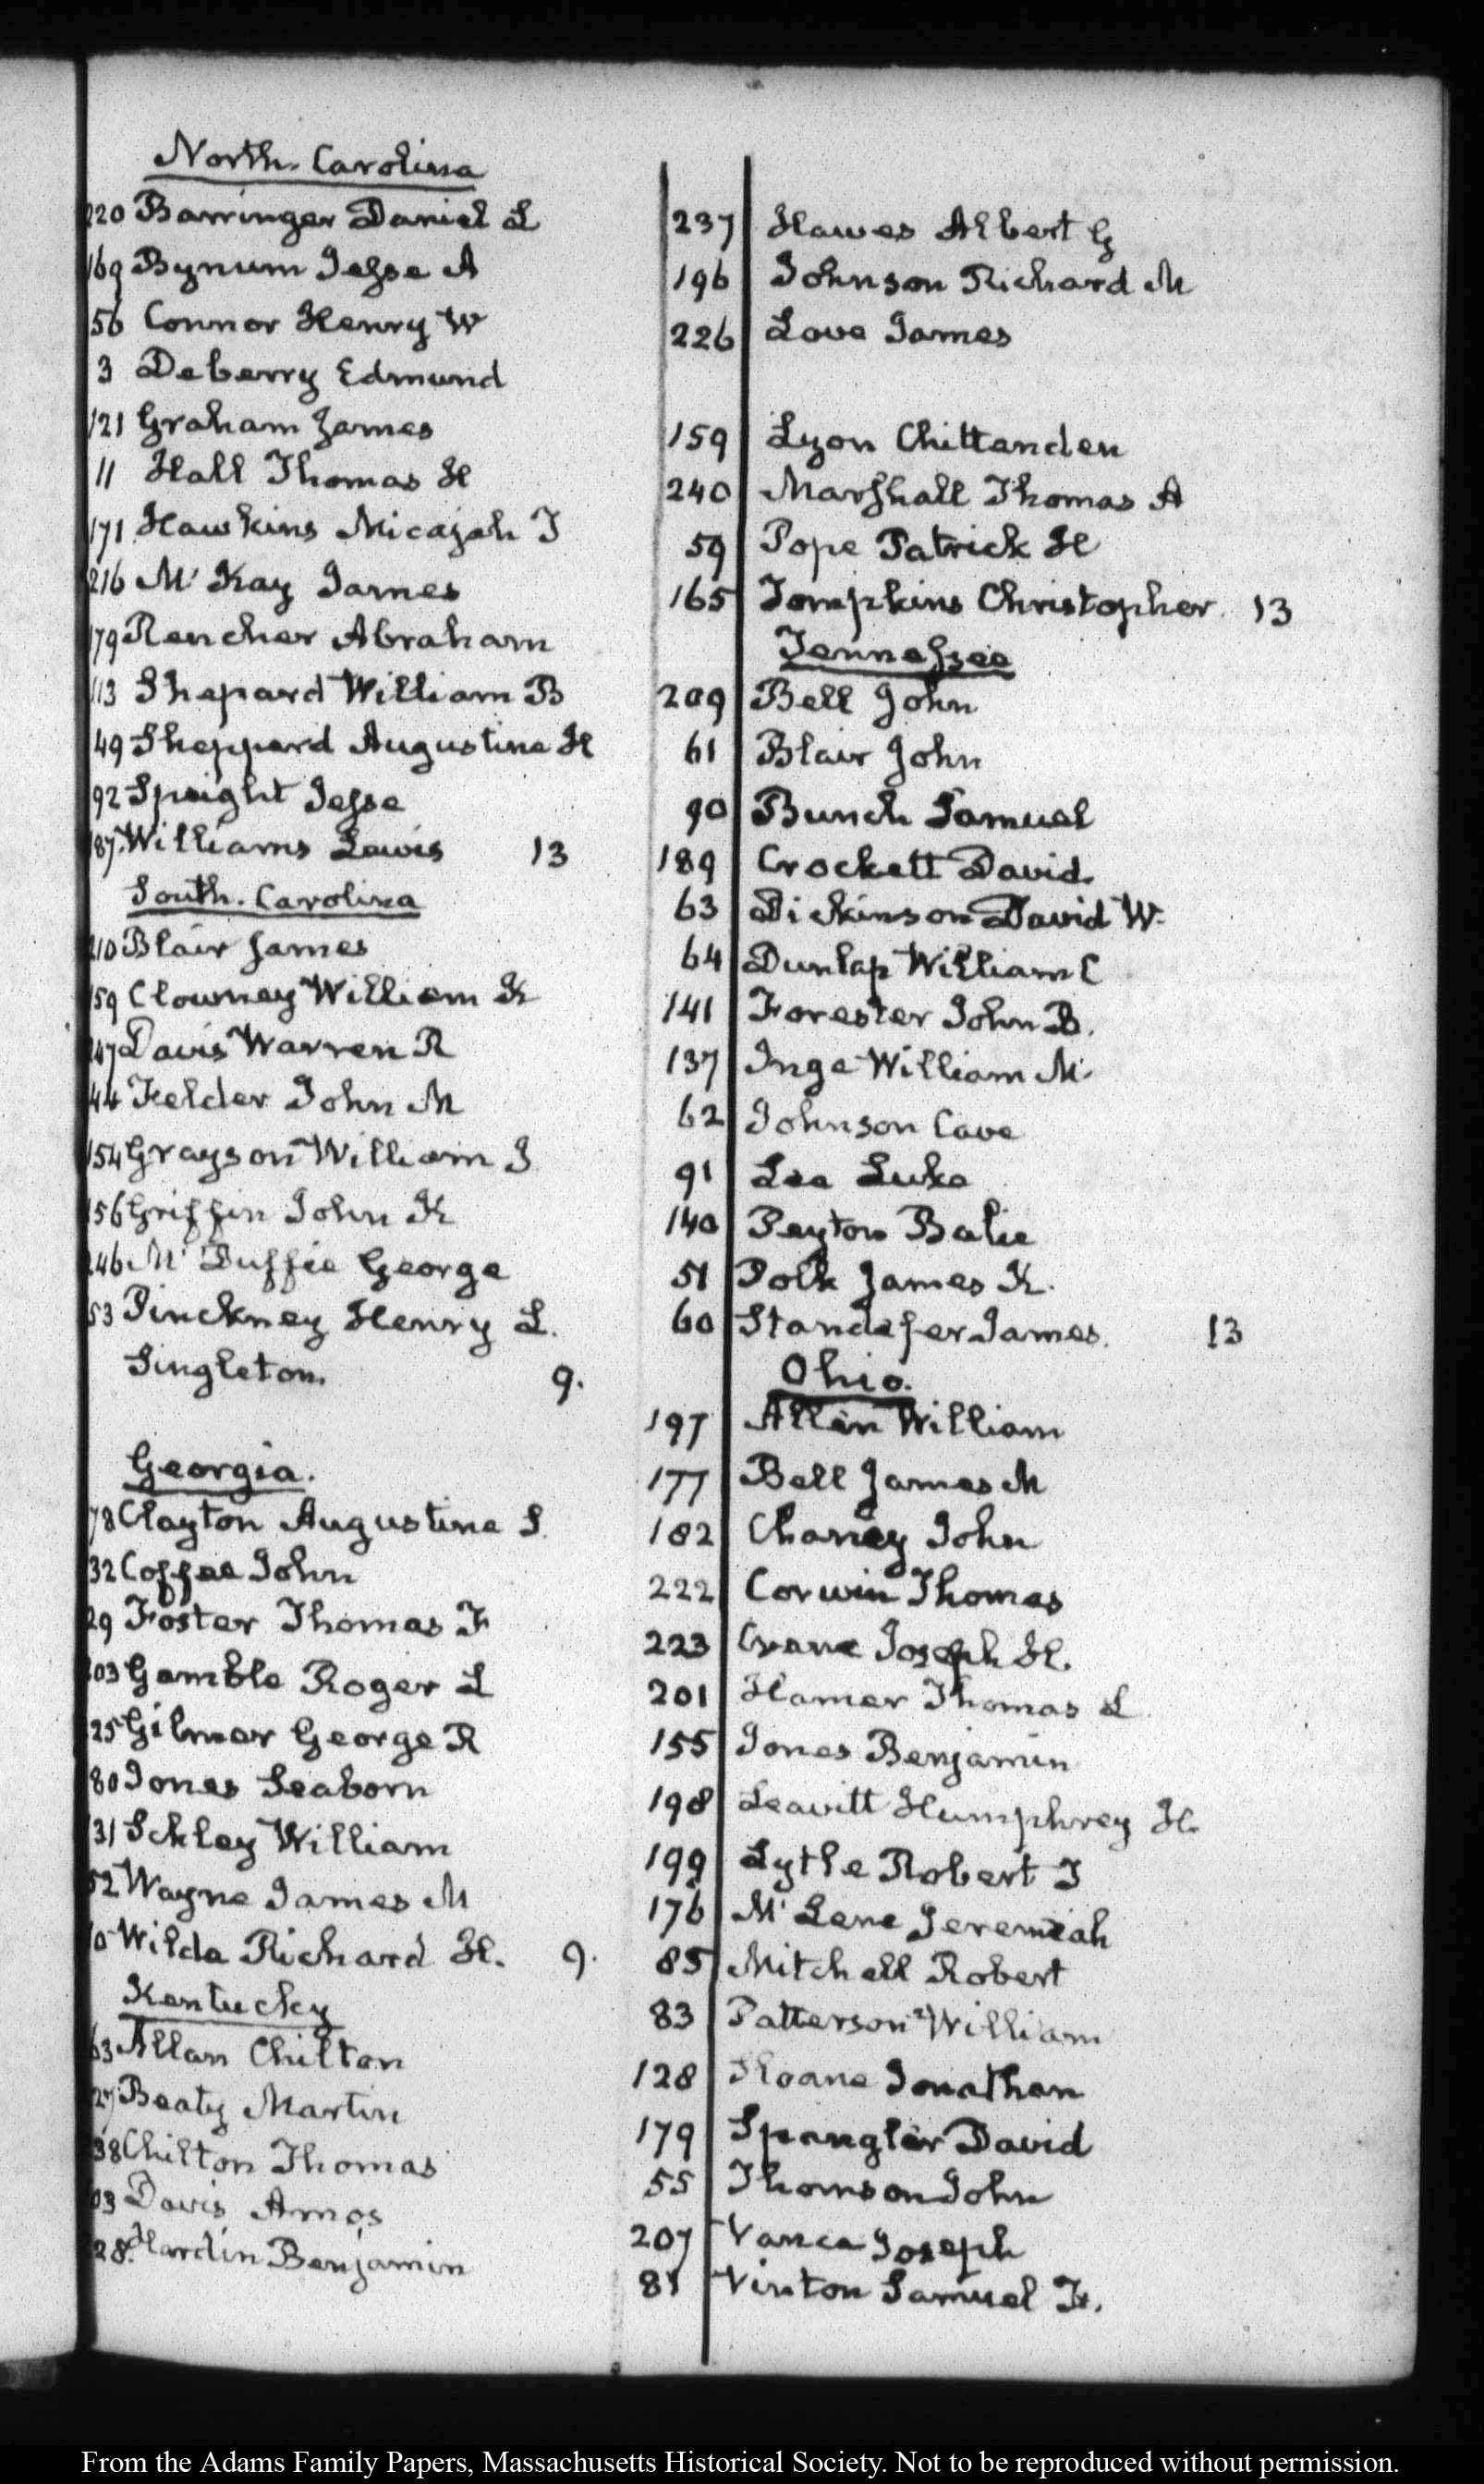 North. Carolina
220 Barringer Daniel L
169 Bynum Jesse A
56 Connor Henry W
3 Deberry Edmund
121 Graham James
11 Hall Thomas H
171 Hawkins Micajah T
216 M'Kay James
179 Rencher Abraham
113 Shepard William B
49 Sheppard Augustine H
92 Speight Jesse
87. Williams Lewis 13
South. Carolina
210 Blair James
159 Clowney William K
247 Davis Warren R
44 Felder John M
154 Grayson William J
156 Griffin John K
246 M'Duffie George
53 Pinckney Henry L.
Singleton. 9.
Georgia.
78 Clayton Augustine S.
32 Coffee John
29 Foster Thomas F
203 Gamble Roger L
25 Gilmer George R
80 Jones Seaborn
131 Schley William
52 Wayne James M
0 Wilde Richard H. 9.
Kentucky
63 Allan Chilton
27 Beaty Martin
38 Chilton Thomas
03 Davis Amos
28. Hardin Benjamin
237 Hawes Albert G
196 Johnson Richard M
226 Love James
159 Lyon Chittenden
240 Marshall Thomas A
59 Pope Patrick H
165 Tompkins Christopher. 13
Tennessee
209 Bell John
61 Blair John
90 Bunch Samuel
189 Crockett David.
63 Dickinson David W.
64 Dunlap William C
141 Forester John B.
137 Inge William M.
62 Johnson Cave
91 Lea Luke
140 Peyton Balie
51 Polk James K.
60 Standefer James. 13
Ohio.
197 Allen William
177 Bell James M
182 Chaney John
222 Corwin Thomas
223 Crane Joseph H.
201 Hamer Thomas L
155 Jones Benjamin
198 Leavitt Humphrey H.
199 Lytle Robert T
176 M'Lene Jeremiah
85 Mitchell Robert
83 Patterson William
128 Sloane Jonathan
179 Spangler David
55 Thomson John
207 Vance Joseph
81 Vinton Samuel F.
From the Adams Family Papers, Massachusetts Historical Society. Not to be reproduced without permission.